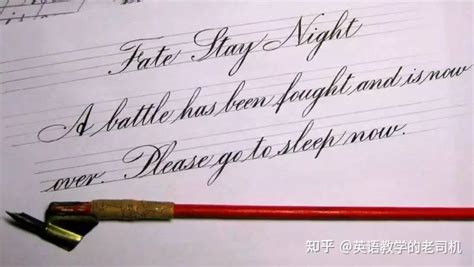 Fate Stay Night
A battle has been fought and is now
over. Please go to sleep now.
知乎 @英语教学的老司机